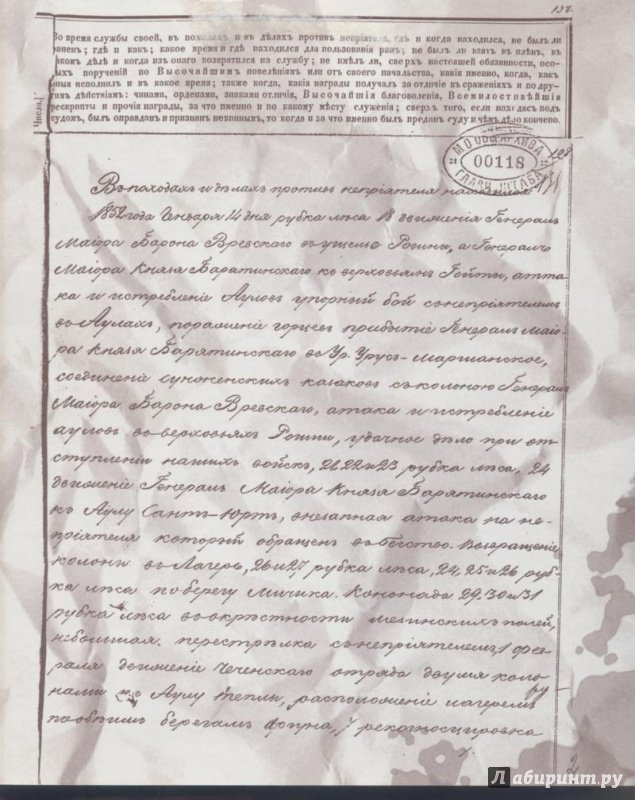 132.
Во время службы своей, въ походахъ и въ дѣлахъ противъ непріятеля, гдѣ и когда находился, не былъ ли
раненъ; гдѣ и какъ; какое время и гдѣ находился для пользованія ранъ; не былъ ли взятъ въ плѣнъ, въ
какомъ дѣлѣ и когда изъ онаго возвратился на службу; не имѣлъ ли, сверхъ настоящей обязанности, осо-
быхъ порученій по Высочайшимъ повелѣніямъ или отъ своего начальства, какія именно, когда, какъ
оныя исполнилъ и въ какое время; также когда, какія награды получалъ за отличіе въ сраженіяхъ и по дру-
гимъ дѣйствіямъ: чинами, орденами, знаками отличія, Высочайшія благоволенія, Всемилостивѣйшія
рескрипты и прочія награды, за что именно и по какому мѣсту служенія; сверхъ того, если находясь подъ
судомъ, былъ оправданъ и признанъ невиннымъ, то когда и за что именно былъ преданъ суду и чѣмъ дѣло кончено.
Числа.
МОСК. АРХИВА
00118
ГЛАВН. ШТАБА
Въ походахъ и дѣлахъ противъ непріятеля находился
1852 года Генваря 14 дня рубка лѣса 18 движенія Генералъ
Маіора Барона Вревскаго въ ущелье Рошни, а Генералъ
Маіора Князя Барятинскаго ко верховьямъ Гойты, атта-
ка и истребленіе Ауловъ упорный бой съ непріятелемъ
въ Аулахъ, пораженіе горцевъ прибытіе Генералъ Маіо-
ра Князя Барятинскаго въ Ур. Урусъ-Мартанское,
соединеніе сунженскихъ казаковъ съ колоною Генералъ
Маіора Барона Вревскаго, атака и истребленіе
ауловъ въ верховьяхъ Рошни, удачное дѣло при от-
ступленіи нашихъ войскъ, 21 22 и 23 рубка лѣса, 24
движеніе Генералъ Маіора Князя Барятинскаго
къ Аулу Сантъ-Юртъ, внезапная атака на не-
пріятеля который обращенъ въ бѣгство. Возвращеніе
колоны въ Лагерь, 26 и 27 рубка лѣса, 24, 25 и 26 руб-
ка лѣса по берегу Мичика. Кононада 29, 30 и 31
рубка лѣса въ окрѣстности мезинскихъ полей,
небольшая перестрѣлка съ непріятелемъ, 1 фев-
раля движеніе Чеченскаго отряда двумя коло-
нами къ Аулу Тепли, расположеніе лагеремъ
по обѣимъ берегамъ Аргуна, 7 рекогносцировка
Лабиринт.ру